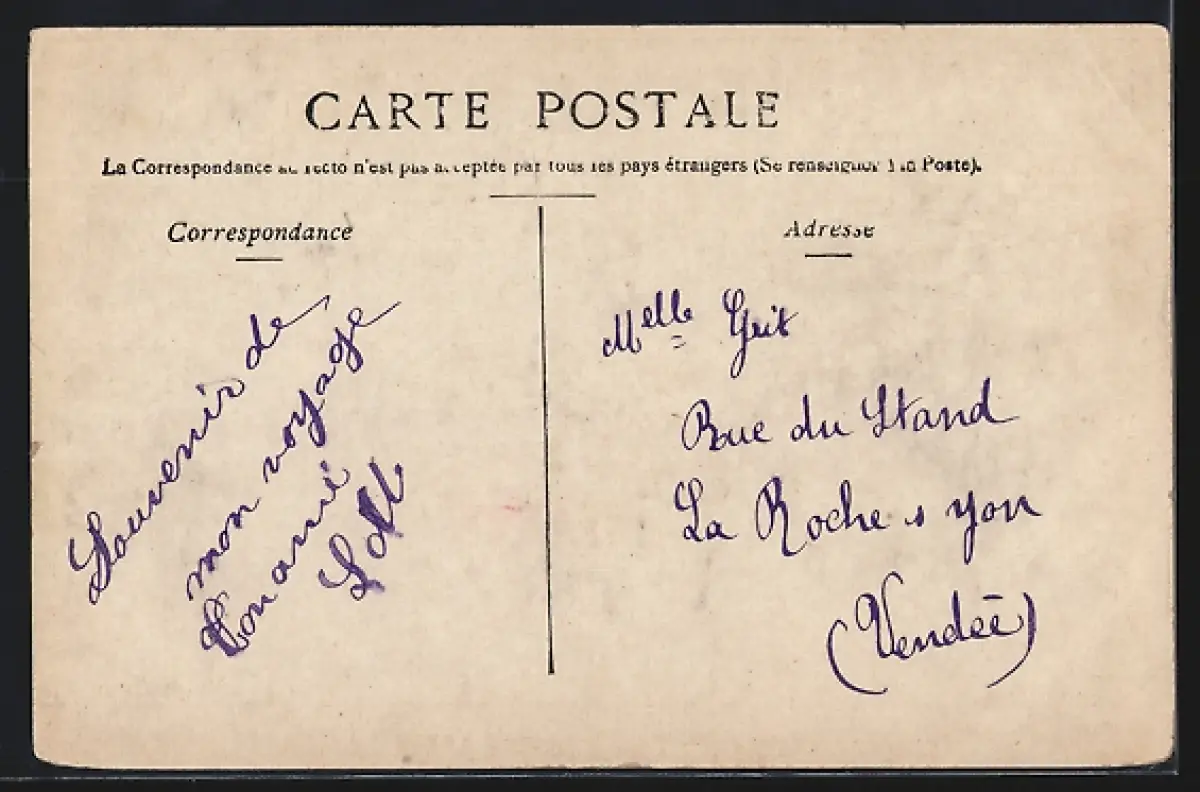 CARTE POSTALE
La Correspondance au recto n'est pas acceptée par tous les pays étrangers (Se renseigner à la Poste).
Correspondance
Souvenir de
mon voyage
Ton ami
Adresse
Melle
Rue du Stand
La Roche s yon
(Vendée)